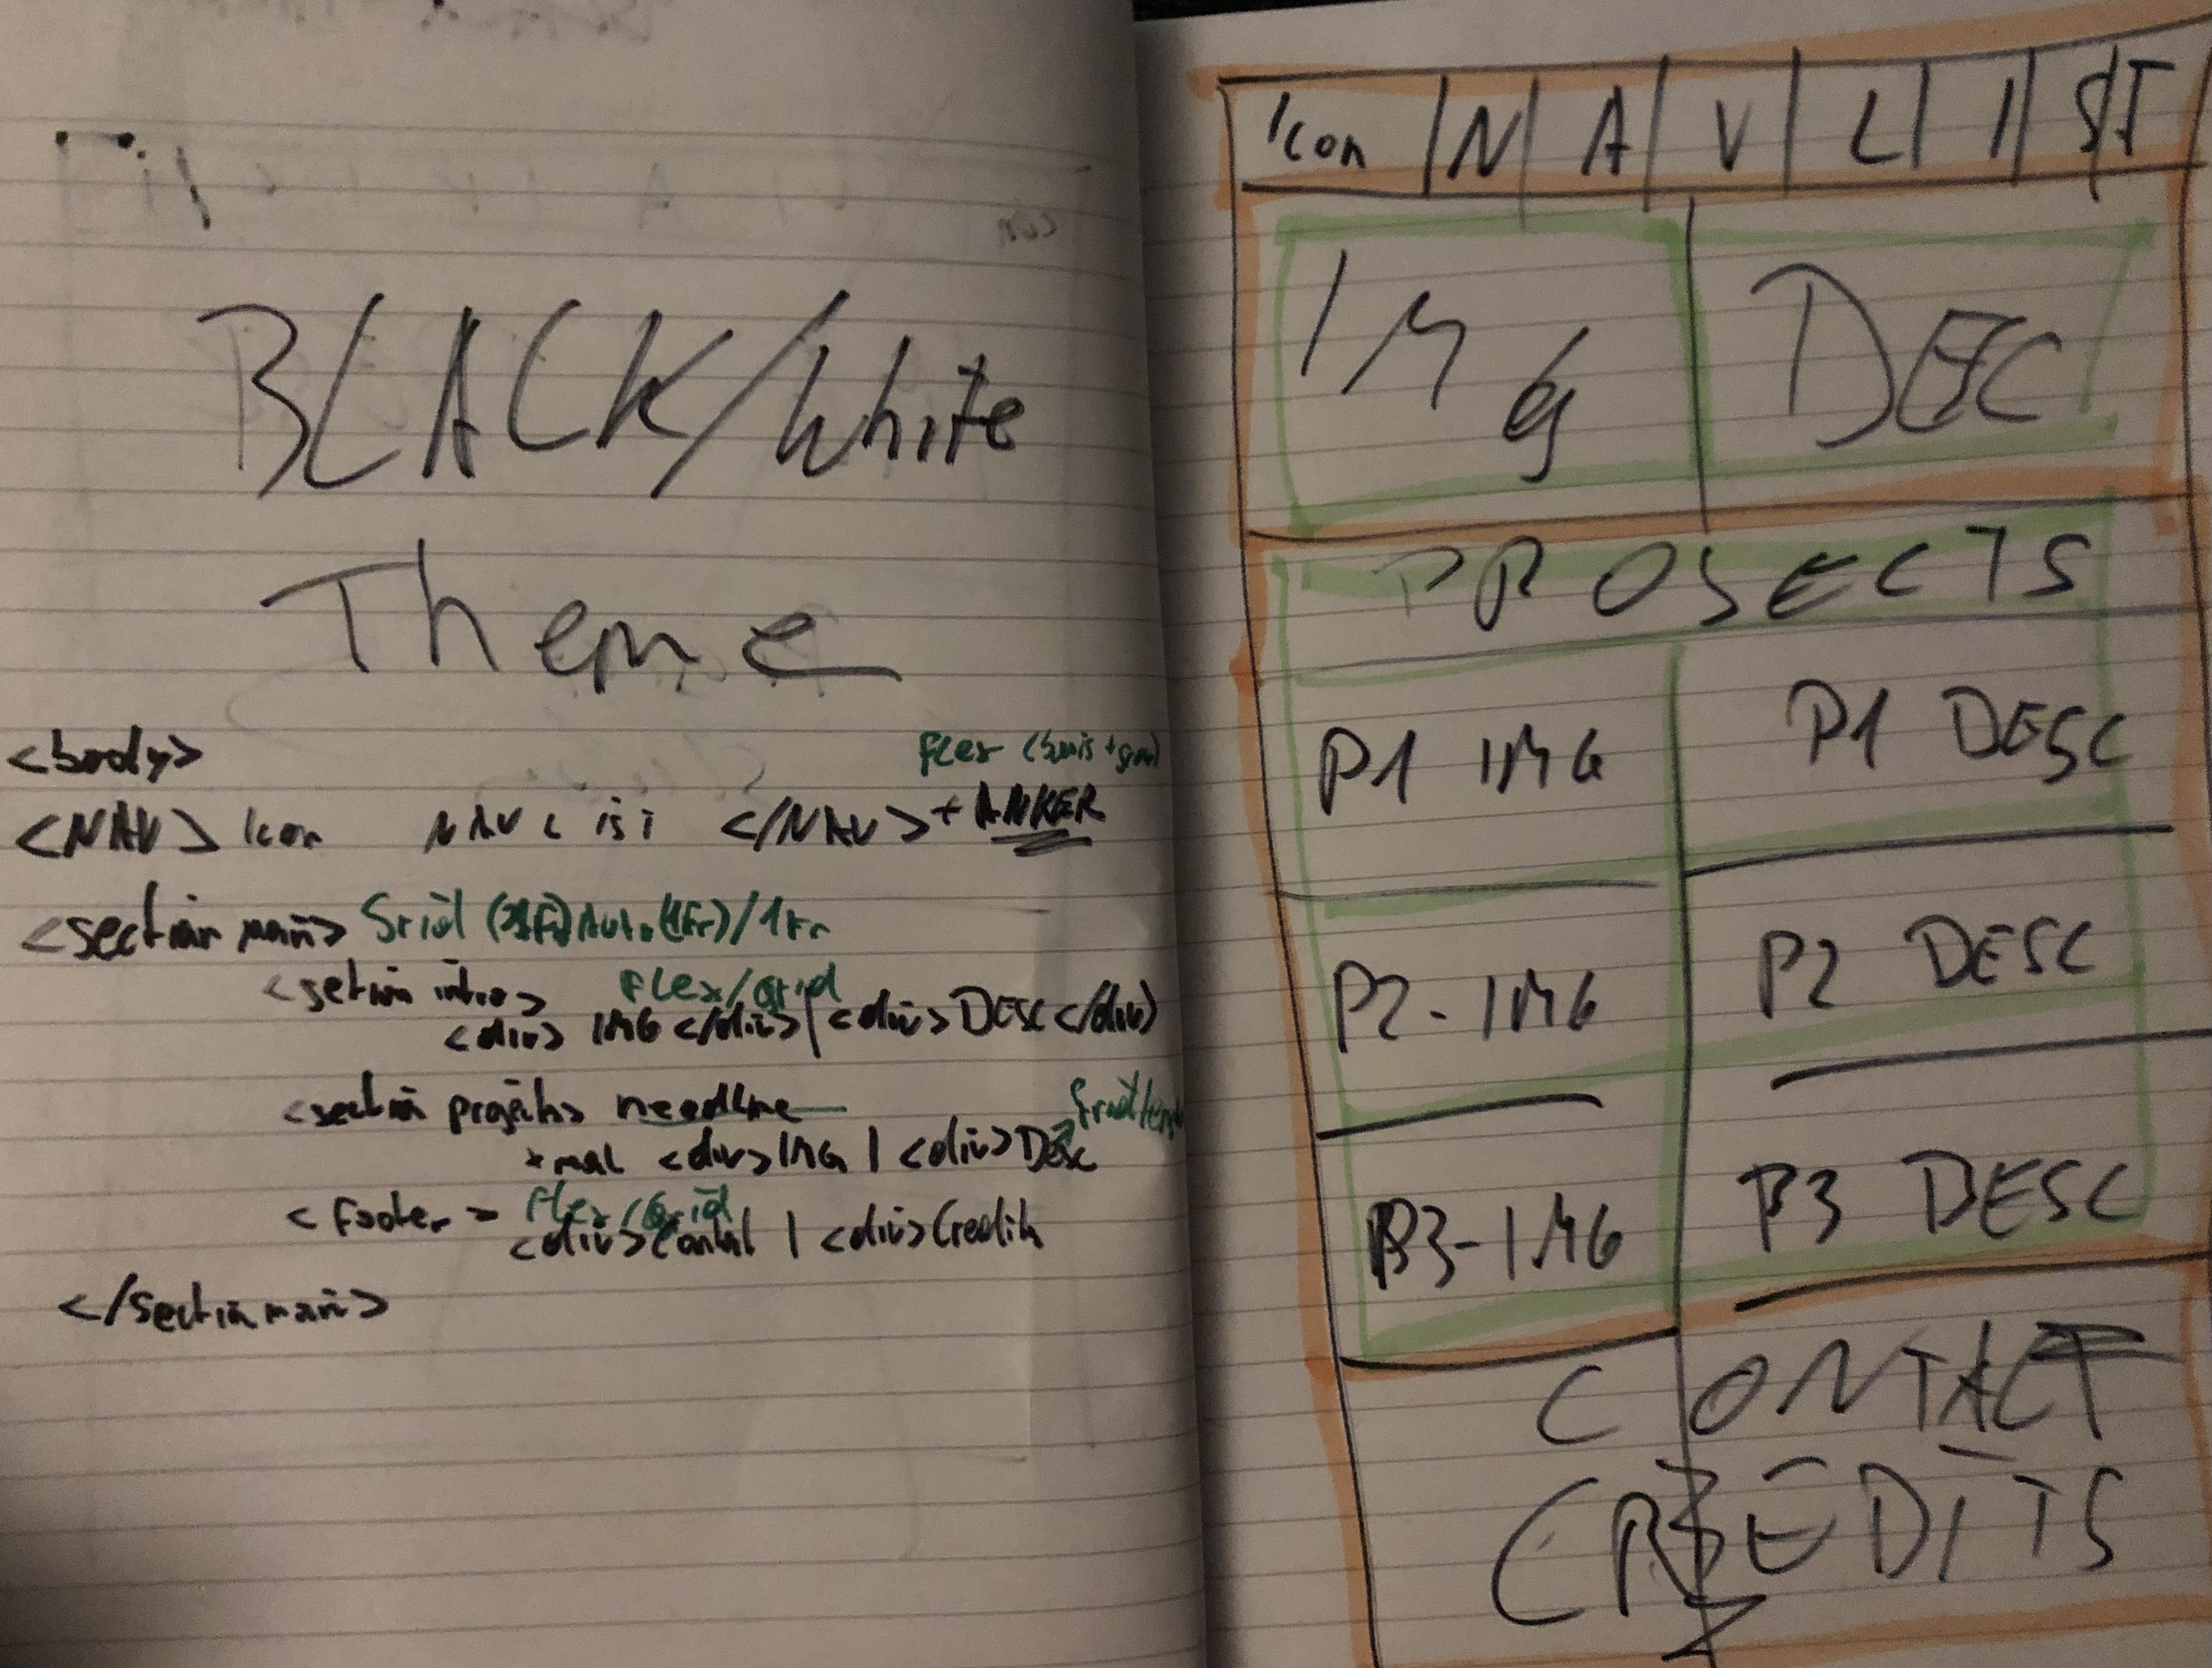 BLACK/White
Theme
<body>
Flex
<NAV> Icon NAV List </NAV> + ANKER
<section main> Grid Auto (1Fr)/1Fr
<section intro> Flex/Grid
<div> IMG </div> | <div> DESC </div>
<section projects headline
x mal <div> IMG | <div> Desc
<footer> Flex/Grid
<div> Contact | <div> Credits
</section main>
Icon | N | A | V | L | I | ST
IMG DESC
PROJECTS
P1 IMG P1 DESC
P2-IMG P2 DESC
P3-IMG P3 DESC
CONTACT
CREDITS